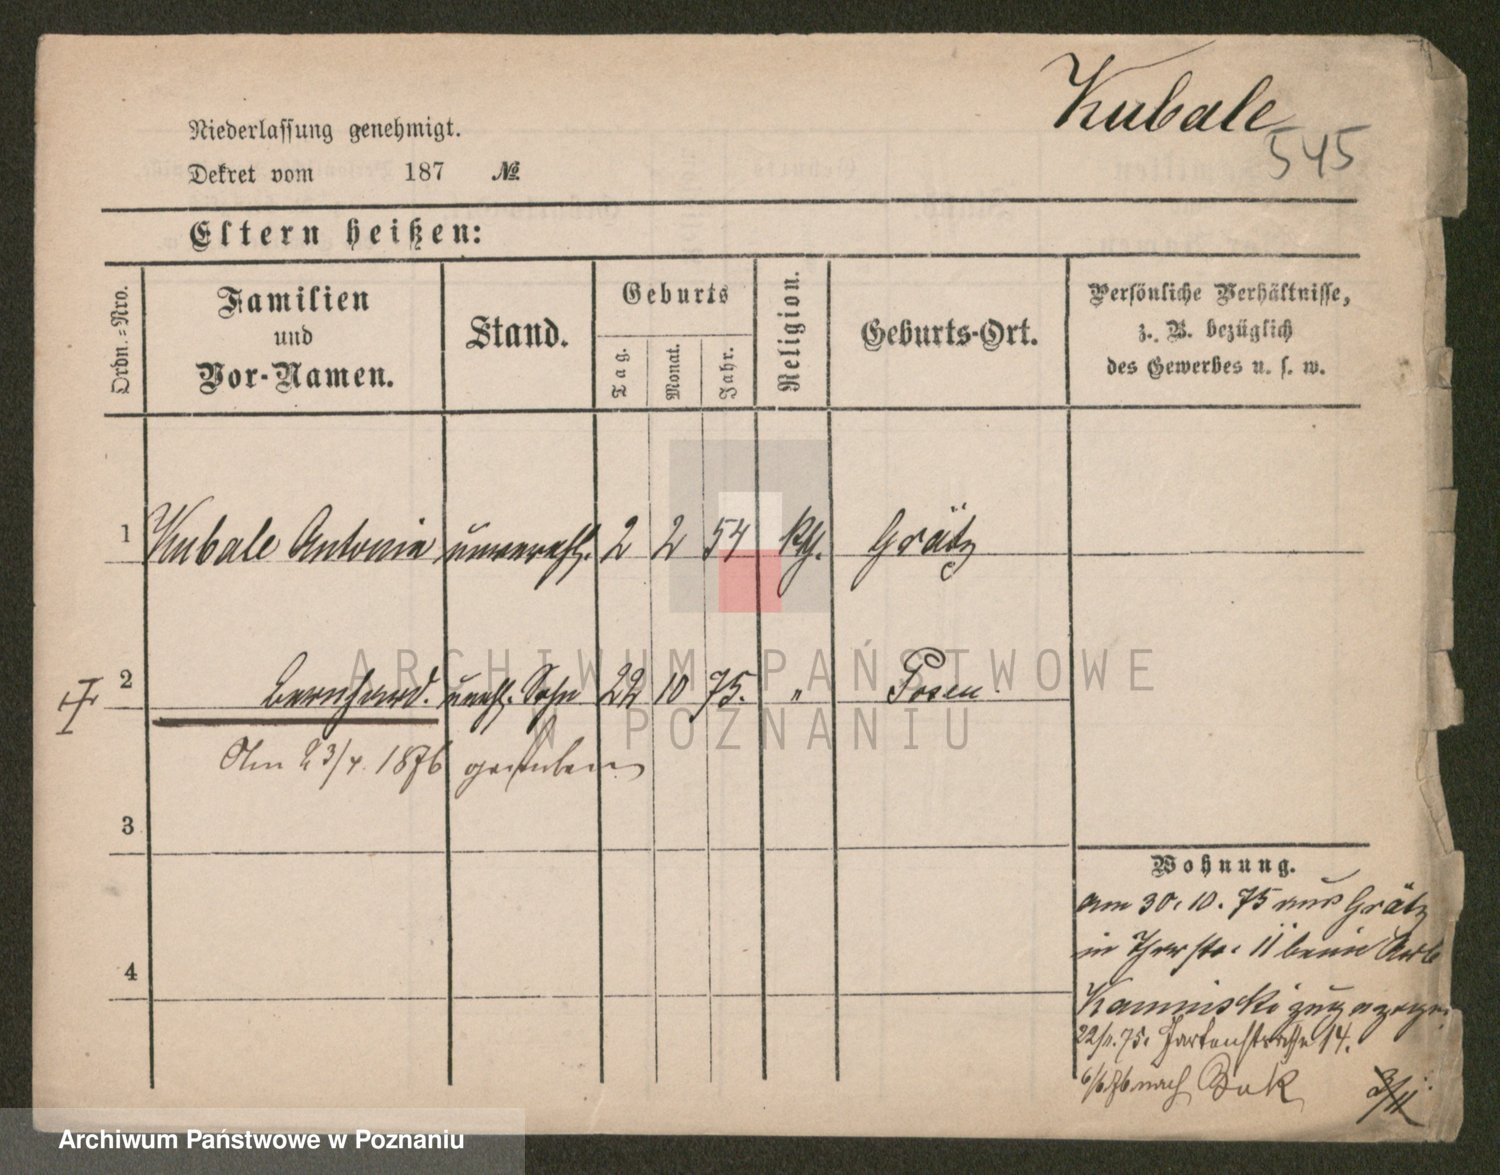 Kubale
545
Niederlassung genehmigt.
Dekret vom 187 №
Eltern heißen:
Ordn.-Nro.
Familien
und
Vor-Namen.
Stand.
Geburts
Tag.
Monat.
Jahr.
Religion.
Geburts-Ort.
Persönliche Verhältnisse,
z. B. bezüglich
des Gewerbes u. s. w.
1 Kubale Antonie unverehl. 2 2 54 kth. Grätz
2 Bernhard. unehl. Sohn 22 10 75. " Posen.
Am 23/4. 1876 gestorben
3
4
Wohnung.
am 30. 10. 75 aus Grätz
in 11 beim Arb
Kaminski zugezogen
22/11. 75. Gartenstrasse 14.
6/6 76 nach Buk
3/11.
ARCHIWUM PAŃSTWOWE
W POZNANIU
Archiwum Państwowe w Poznaniu